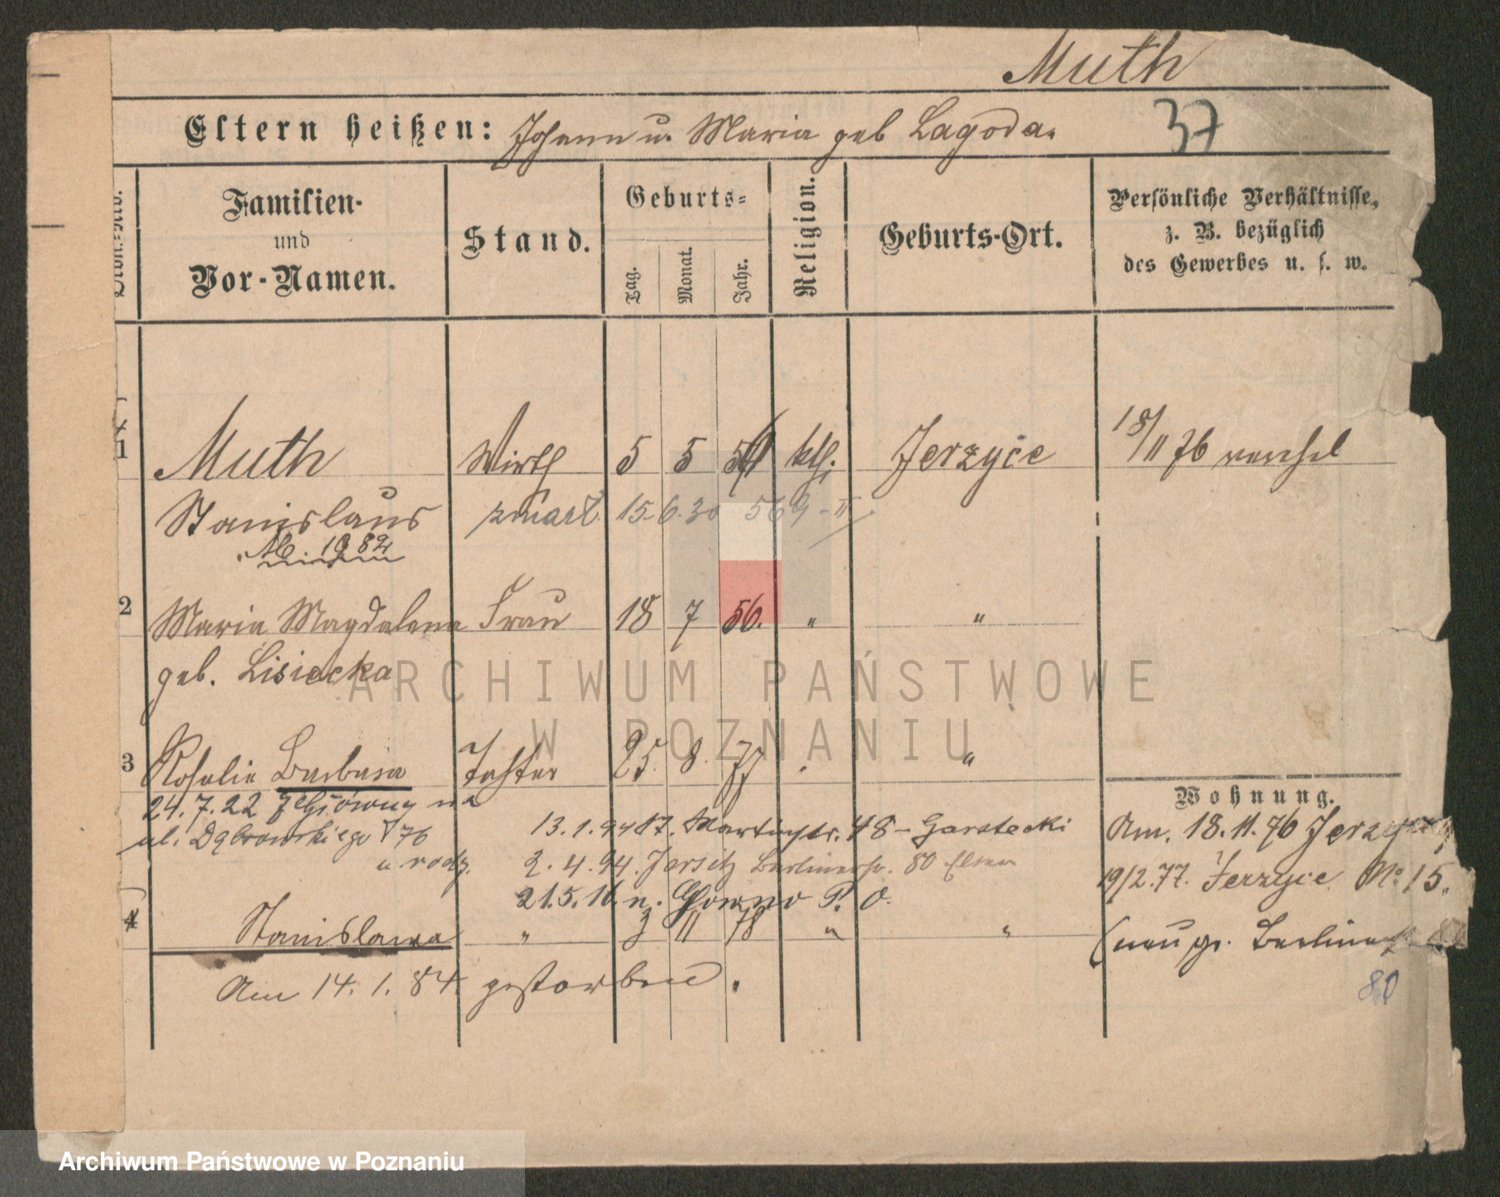 Muth
Eltern heißen: Johann u. Maria geb Lagoda. 37
Familien- und Vor-Namen.
Stand.
Geburts-
Tag. Monat. Jahr.
Religion.
Geburts-Ort.
Persönliche Verhältnisse,
z. B. bezüglich
des Gewerbes u. s. w.
1 Muth Wirth 5 5 kth. Jerzyce 18/11 76
Stanislaus zmarł 15.6.30 569-II
2 Maria Magdalena Frau 18 7 56. " "
geb. Lisiecka
3 Rosalie Barbara Tochter 25. 8. 77 "
24.7.22
ul. Dąbrowskiego 76
u rodz.
13.1.94 Martinstr. 48 - Garstecki
2.4.94. Jersitz Berlinerstr. 80 Eltern
21.5.16. n. P. O.
4 Stanislawa " 3 11 78 " "
Am 14. 1. 84 gestorben.
Wohnung.
Am. 18. 11. 76
19/2.77. Jerzyce No 15.
80
ARCHIWUM PAŃSTWOWE
W POZNANIU
Archiwum Państwowe w Poznaniu